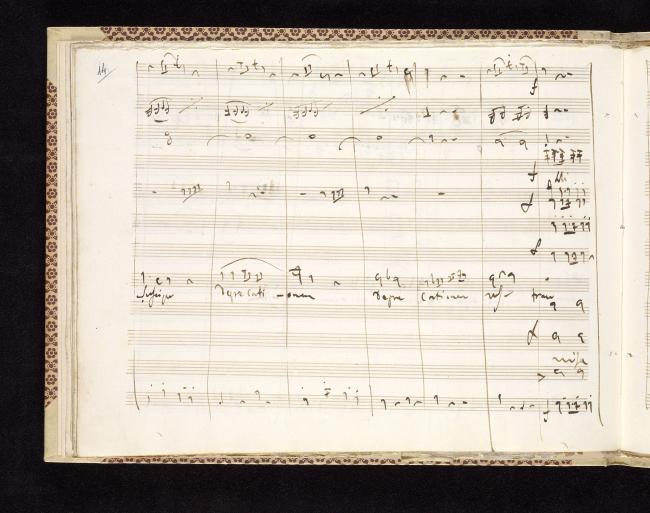 14
f
f
f
f
Suscipe Depre cati - onem Depre cationem nos- tram
f
mise
f